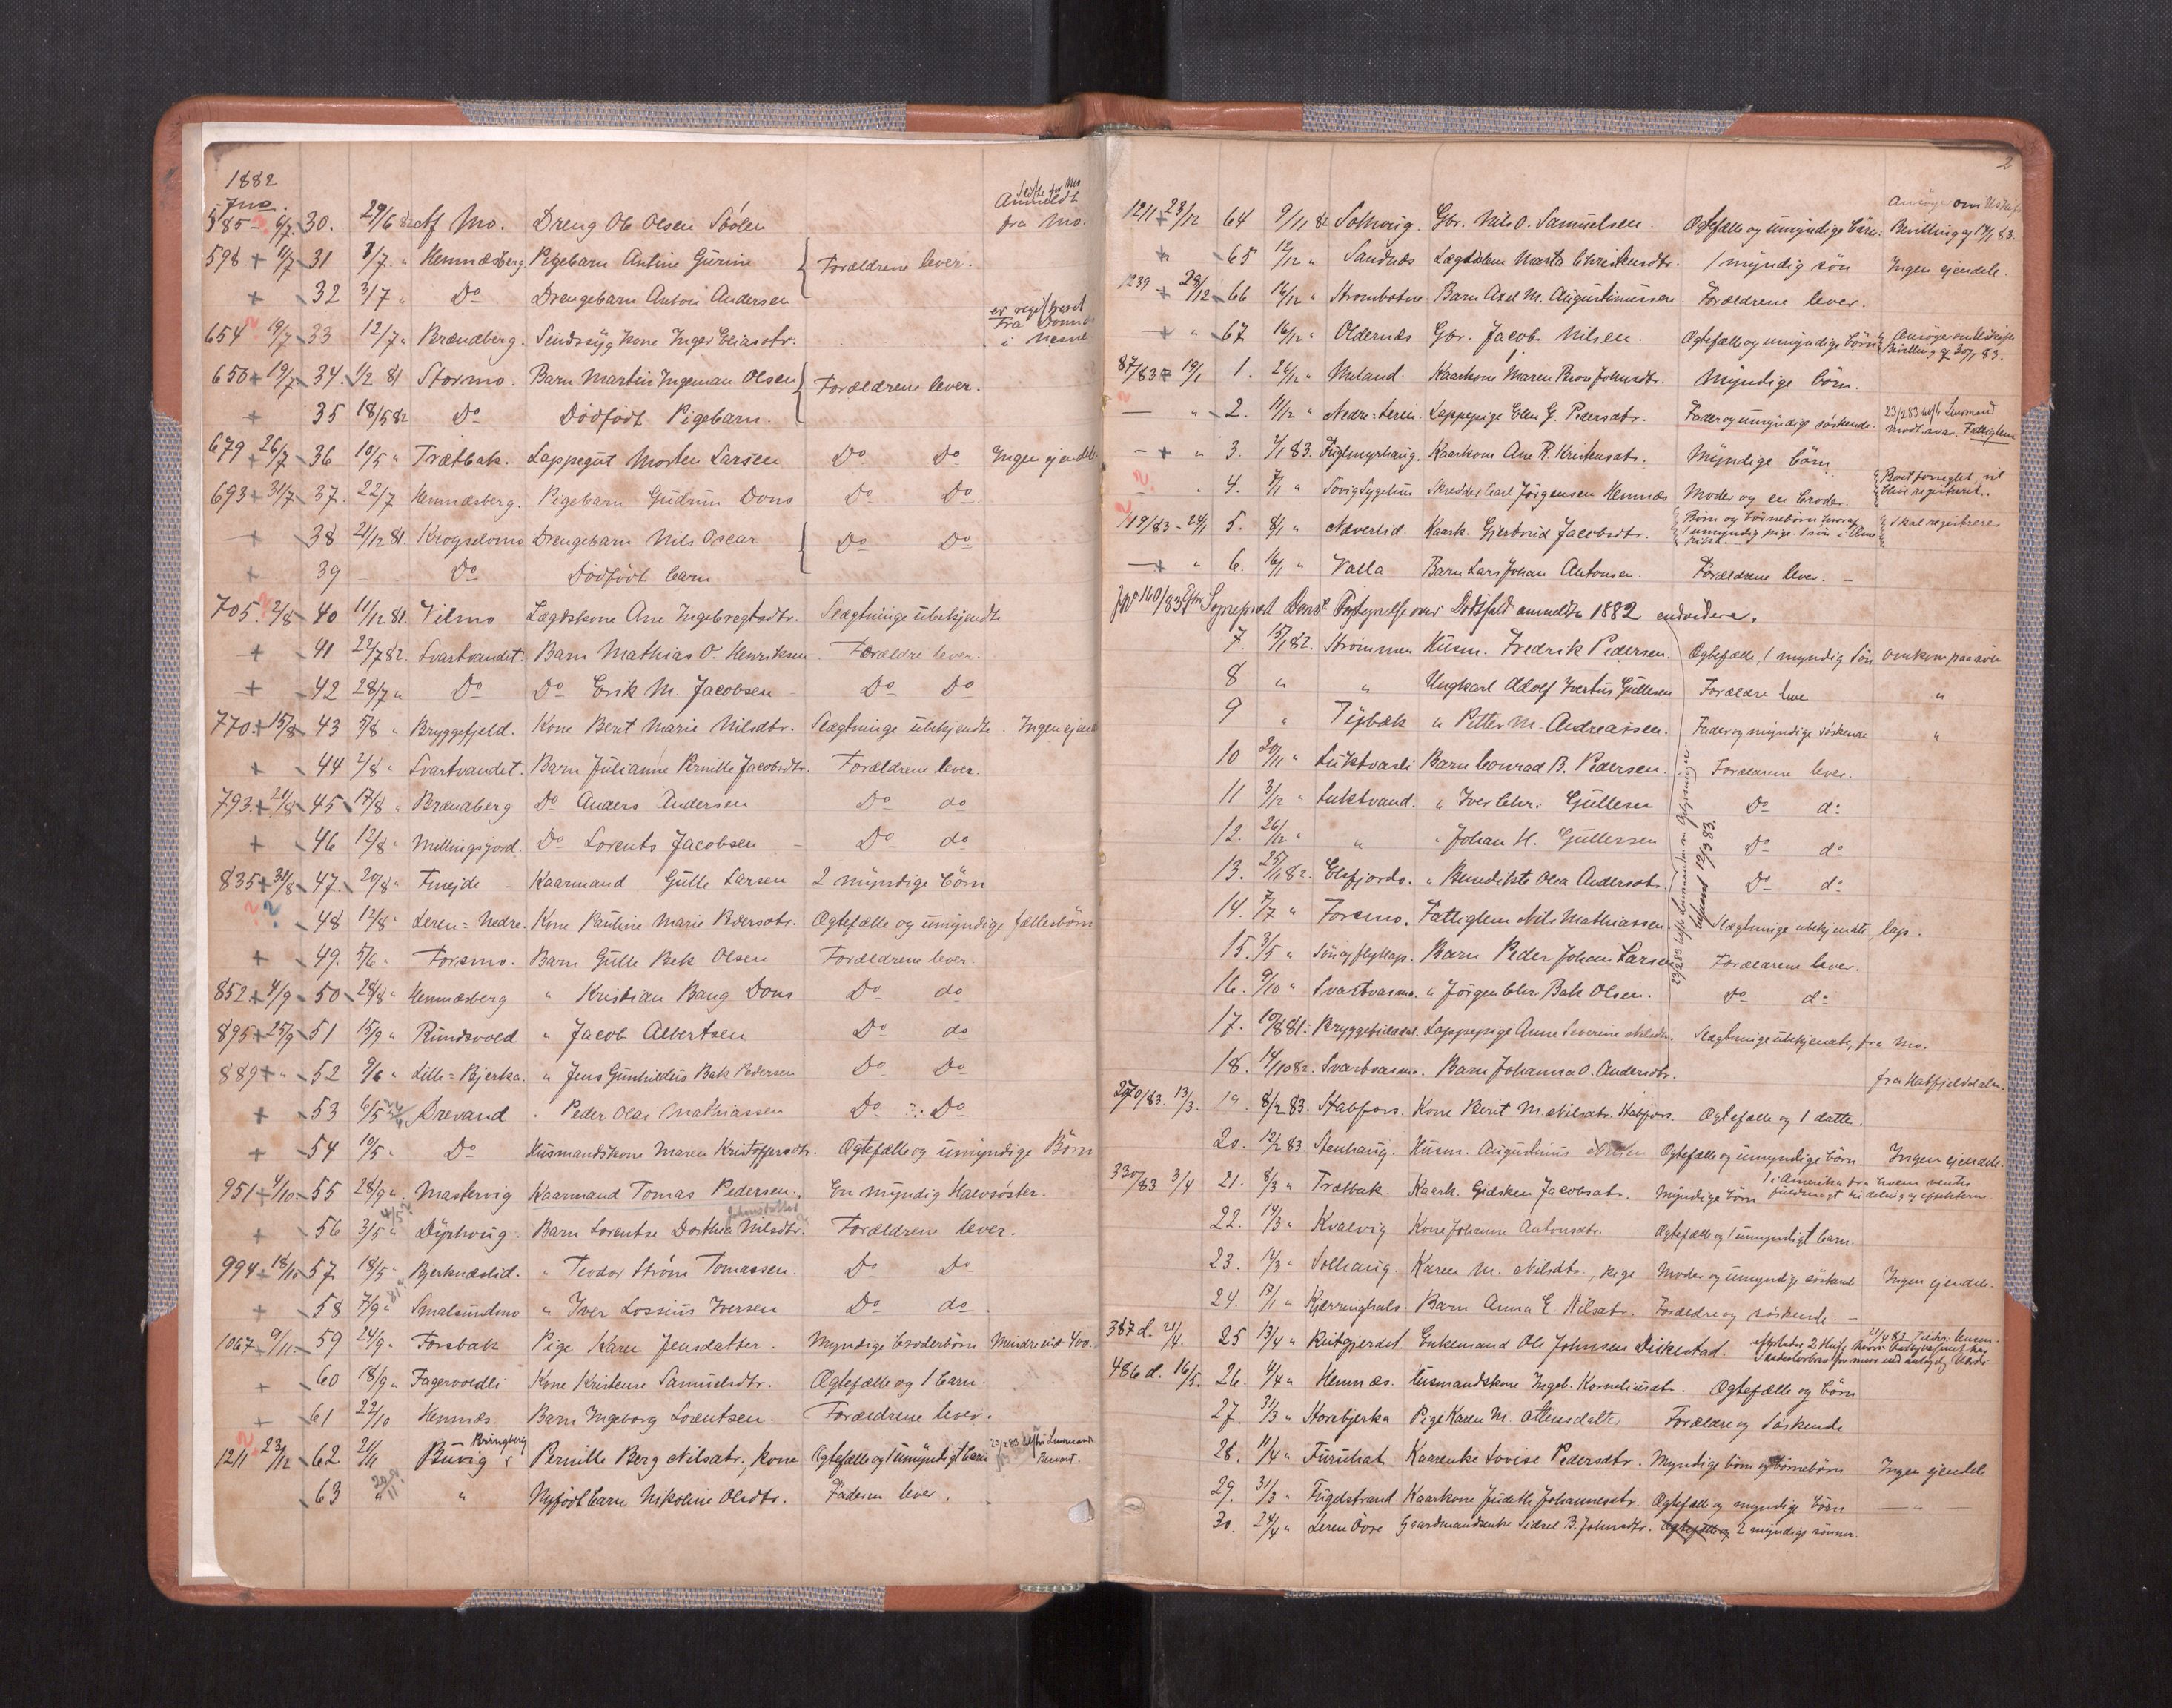 1882
Jno.
Anmeldt
585 - 6/7. 30. 29/6 82 Af Mo. Dreng Ole Olsen fra Mo.
598 + 11/7 31 1/7. " Hemnæsberg Pigebarn Antine Gurine Forældrene lever.
+ 32 3/7 " Do Drengebarn Anton Andersen
er regist
Fra
654 19/7 33 12/7 " Brændberg. Sindssyg kone Inger Eliasdtr. i Nesne
650 + 19/7 34. 1/2 81 Stormo. Barn Martin Ingeman Olsen Forældrene lever.
+ 35 18/5 82 Do Dödfödt Pigebarn.
679 26/7 36 10/5 " Trætbak. Lappegut Morten Larsen Do Do Ingen ejendele
693 + 31/7 37. 22/7 Hemnæsberg. Pigebarn Gudrun Dons Do Do
+ 38 21/12 81. Drengebarn Nils Oscar Do Do
+ 39 Do Dödfödt barn
705. 2/8 40 11/12 81. Lægdskone Ane Ingebregtsdtr. Slægtninge ubekjendte
+ 41 22/7 82. Svartvandet. Barn Mathias O. Henriksen Forældre lever.
+ 42 28/7 " Do Do Erik M. Jacobsen Do Do
770. + 15/8 43 5/8 " Bryggfjeld. Kone Beret Marie Nilsdtr. Slægtninge ubekjendte. Ingen ejend
+ 44 2/8 " Svartvandet. Barn Julianne Pernille Jacobsdtr. Forældrene lever.
793. + 21/8 45 17/8 " Brændberg Do Anders Andersen Do do
+ 46 12/8 " Millingsjord. Do Lorents Jacobsen Do do
835 + 31/8 47. 20/8 " Kaarmand Gulle Larsen 2 myndige börn
48 12/8 " Leren=Nedre. Kone Pauline Marie Pedersdtr. Ogtefælle og umyndige fællesbörn
+ 49. 5/6 " Forsmo. Barn Gulle Bek Olsen Forældrene lever.
852. + 4/9 50 28/8 " Hemnæsberg " Kristian Bang Dons Do do
895 + 25/9 51 15/9 " Rundsvold " Jacob Albertsen Do do
889 + " 52 9/6 " Lille=Bjerka. " Jens Gunhildius Bak Pedersen Do Do
+ 53 6/5 Drevand . Peder Olai Mathiassen Do Do
+ 54 10/5 " Do Husmandskone Maren Kristoffersdtr. Ogtefælle og umyndige Börn
951 + 4/10 55 28/9 " Mastervig Kaarmand Tomas Pedersen. En myndig Halvsöster.
+ 56 3/5 " Dyrhoug. Barn Lorentse Dorthea Nilsdtr. Forældrene lever.
994 - 18/10 57 18/5 " Bjerknæslid. " Teodor Ström Tomassen. Do Do
+ 58 7/9 " Smalsundmo " Iver Lossius Iversen Do do.
1067 - 9/11 59 24/9 " Forsbak Pige Karen Jensdatter. Myndige broderbörn Mindre end 400.
+ 60 18/9 " Fagervoldli Kone Kristense Samuelsdtr. Ogtefælle og 1 barn.
+ 61 22/10 Hemnæs. Barn Ingeborg Lorentsen. Forældrene lever.
1211 23/12 62 21/11 Buvig Bringberg Pernille Berg Nilsdtr., kone Ogtefælle og 1 umyndigt barn 23/2 83 Lensmand
63 " " Nyfödt barn Nikoline Olsdtr. Faderen lever.
2
1211 + 23/12 64 9/11 82 Solhoug. Gbr. Nils O. Samuelsen. Ogtefælle og umyndige börn. Bevilling af 17/1 83.
+ 65 12/12 " Sandnæs Marta Christensdtr. 1 myndig sön Ingen ejendele.
1239 + 29/12 66 16/12 " Strombotne Barn Axel M. Augustinussen. Forældrene lever.
+ " 67 16/12 " Oldernæs Gbr. Jacob Nilsen. Ogtefælle og umyndige börn Bevilling af 30/1 83.
87/83 + 19/1 1. 26/12 " Meland. Kaarkone Maren Johnsdtr. Myndige börn.
" 2. 11/12 " Nedre=Leren. Lappepige Elen G. Pedersdtr. Fader og umyndige söskende. 23/2 83 Lensmand
+ " 3. 7/1 83. Fuglmyrhaug. Kaarkone Ane R. Kristensdtr. Myndige börn
" 4. 7/1 " Sövig Sygehus Skrædder Carl Jörgensen Hemnæs Moder og en broder.
119/83 - 24/1 5. 8/1 " Næverlid. Kaark. Gjertrud Jacobsdtr. Börn og börnebörn Skal registreres
+ " 6. 16/1 " Valla Barn Lars Johan Antonsen. Forældrene lever.
Sogneprest Dons's Fortegnelse over Dödsfald anmeldte 1882 endvidere.
7. 15/1 82. Strömmen Husm. Fredrik Pedersen. Ogtefælle, 1 myndig Sön omkom paa söen
8 " " Ungkarl Adolf Gullesen Forældre leve "
9 " " Petter M. Andreassen. Fader og myndige söskende "
10 20/11 " Luktvasli Barn Conrad B. Pedersen. Forældrene lever.
11 3/12 " Luktvand. " Iver Chr. Gullesen Do do
12. 26/12 " " " Johan H. Gullesen Do do
13. 25/1 82. Elsfjord. " Benedikte Olea Andersdtr. Do do
14. 7/7 " Forsmo. Fattiglem Nils Mathiassen. Slægtninge ubekjendte, lap.
15. 3/5 " Barn Peder Johan Larsen Forældrene lever.
16. 9/10 " Svartvasmo. " Jörgen Chr. Bak Olsen. Do do
17. 10/8 81. Bryggefjeldal. Lappepige Anne Severine Nilsdtr. Slægtninge ubekjendte, fra Mo.
18. 14/10 82. Svartvasmo. Barn Johanna O. Andersdtr. fra Hatfjelddalen.
270/83. 13/3. 19. 8/2 83. Stabfors. Kone Berit M. Nilsdtr. Stabfors. Ogtefælle og 1 datter.
20. 12/2 83. Stenhaug. Husm. Augustinus Ogtefælle og umyndige börn Ingen ejendele.
330/83 3/4 21. 8/3 " Trætbak. Kaark. Gidsken Jacobsdtr. Myndige börn 1 i Amerika fra hvem ventes fuldmagt
22. 14/3 " Kvalvig Kone Johanne Antonsdtr. Ogtefælle og 1 umyndigt barn.
23. 14/3 " Solhaug. Karen M. Nilsdtr., pige Moder og umyndige söskende Ingen ejendele.
24. 17/1 " Kjerringhals. Barn Anna E. Nilsdtr. Forældre og söskende.
387 d. 21/4. 25 13/4 " Rutgjerdet. Enkemand Ole Johnsen Dilkestad.
486 d. 16/5. 26. 4/4 " Hemnæs. Husmandskone Ingeb. Korneliusdtr. Ogtefælle og börn
27. 31/3 " Storbjerka Pige Karen M. Ottensdatter Forældre og Söskende
28. 11/4 " Furuhat Kaarenke Lovise Pedersdtr. Myndige börn og börnebörn Ingen ejendele
29. 31/3 " Fuglstrand Kaarkone Judith Johannesdtr. Ogtefælle og myndige börn — " —
30. 24/4 " Leren Övre Gaardmandsenke Sidsel B. Johnsdtr. Ogtefælle og 2 myndige sönner.